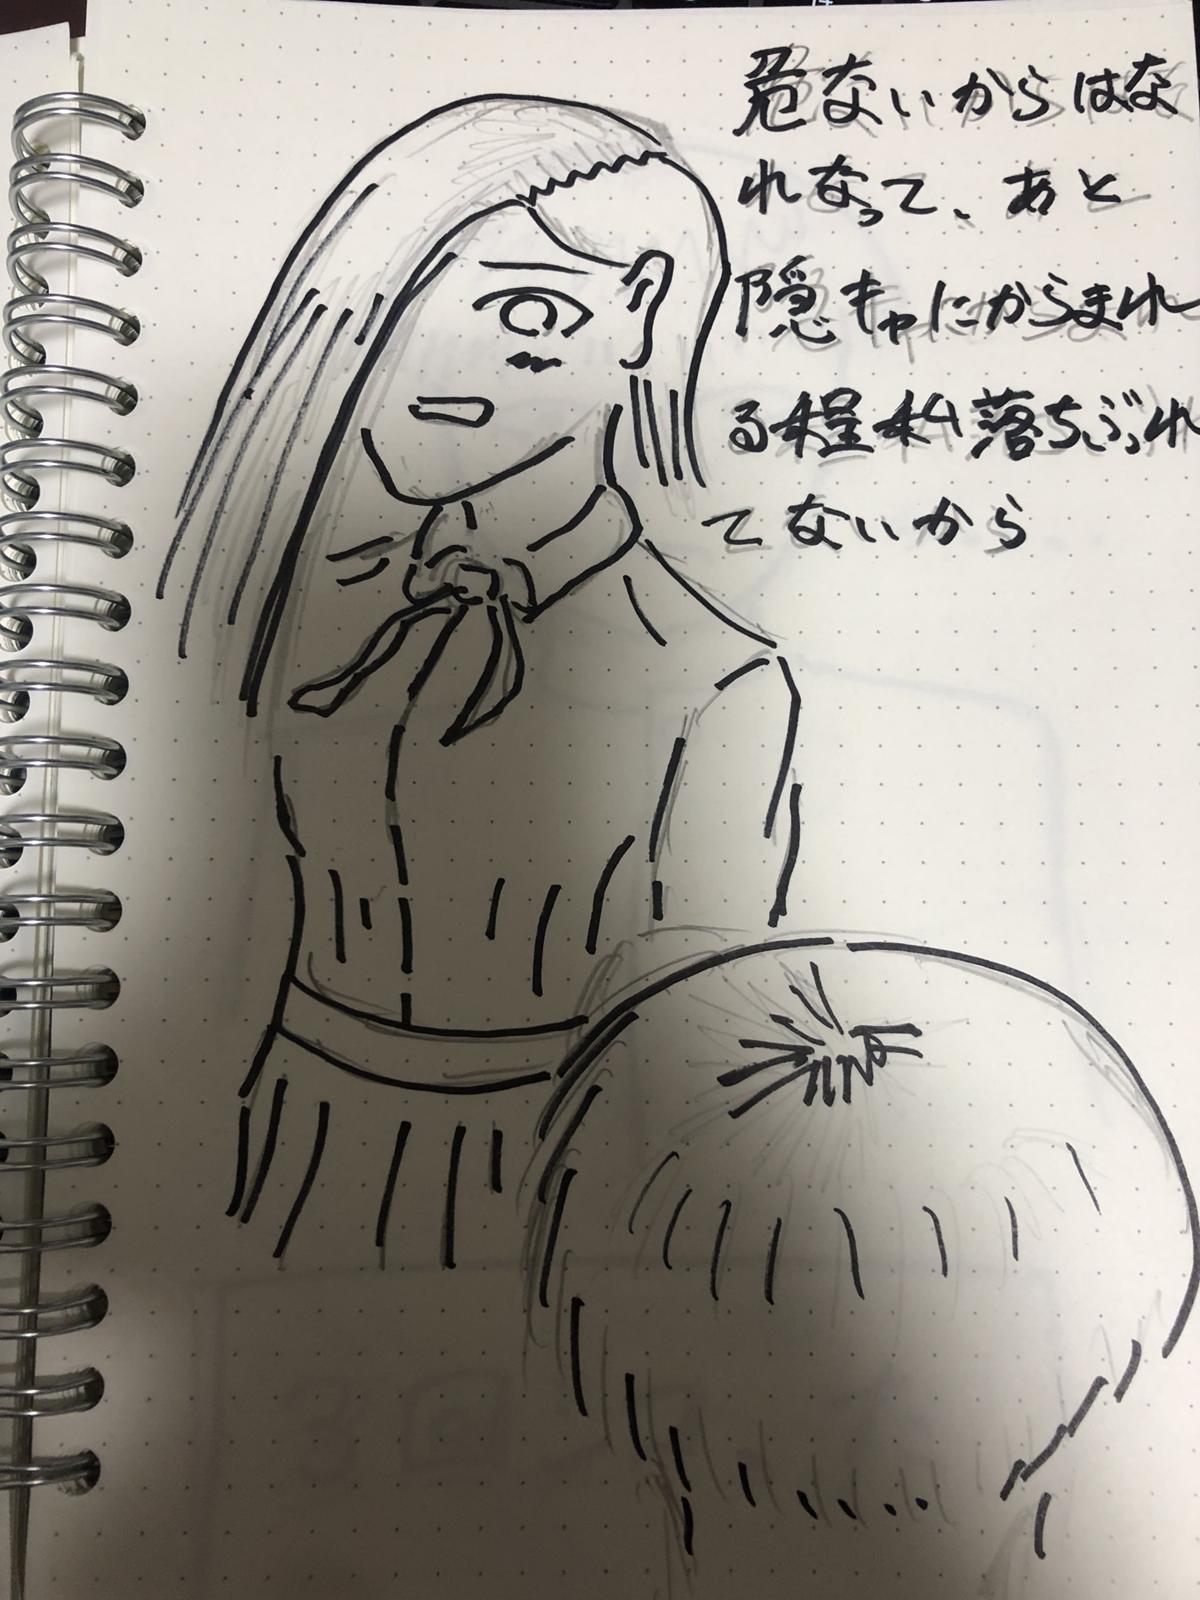 危ないからはな
れなって、あと
隠キャにからまれ
る程私落ちぶれ
てないから